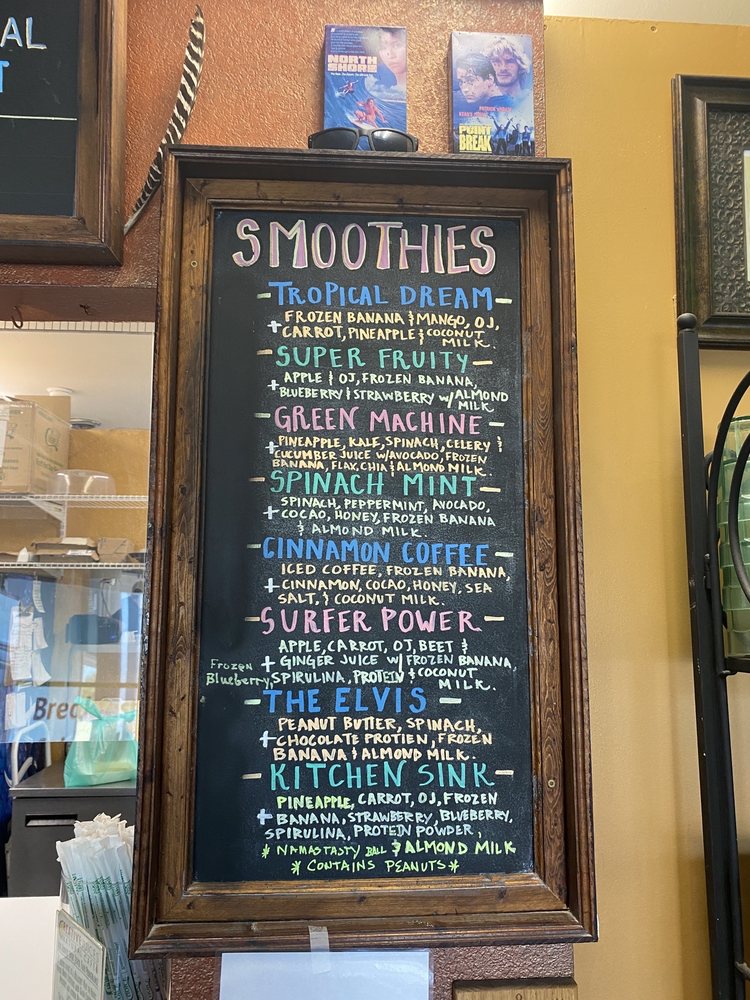 AL
T
NORTH
SHORE
PATRICK SWAYZE
KEANU REEVES
POINT
BREAK
SMOOTHIES
- TROPICAL DREAM -
+ FROZEN BANANA & MANGO, OJ,
CARROT, PINEAPPLE & COCONUT
MILK.
- SUPER FRUITY -
+ APPLE & OJ, FROZEN BANANA,
BLUEBERRY & STRAWBERRY W/ ALMOND
MILK
- GREEN MACHINE -
+ PINEAPPLE, KALE, SPINACH, CELERY &
CUCUMBER JUICE W/AVOCADO, FROZEN
BANANA, FLAX, CHIA & ALMOND MILK.
- SPINACH MINT -
SPINACH, PEPPERMINT, AVOCADO,
+ COCAO, HONEY, FROZEN BANANA
& ALMOND MILK.
- CINNAMON COFFEE -
ICED COFFEE, FROZEN BANANA,
+ CINNAMON, COCAO, HONEY, SEA
SALT, & COCONUT MILK.
- SURFER POWER -
APPLE, CARROT, OJ, BEET &
+ GINGER JUICE W/ FROZEN BANANA,
Frozen
Blueberry, SPIRULINA, PROTEIN & COCONUT
MILK.
- THE ELVIS -
PEANUT BUTTER, SPINACH,
+ CHOCOLATE PROTIEN, FROZEN
BANANA & ALMOND MILK.
- KITCHEN SINK -
PINEAPPLE, CARROT, OJ, FROZEN
+ BANANA, STRAWBERRY, BLUEBERRY,
SPIRULINA, PROTEIN POWDER,
* NAMASTASTY BALL & ALMOND MILK
* CONTAINS PEANUTS *
Brea